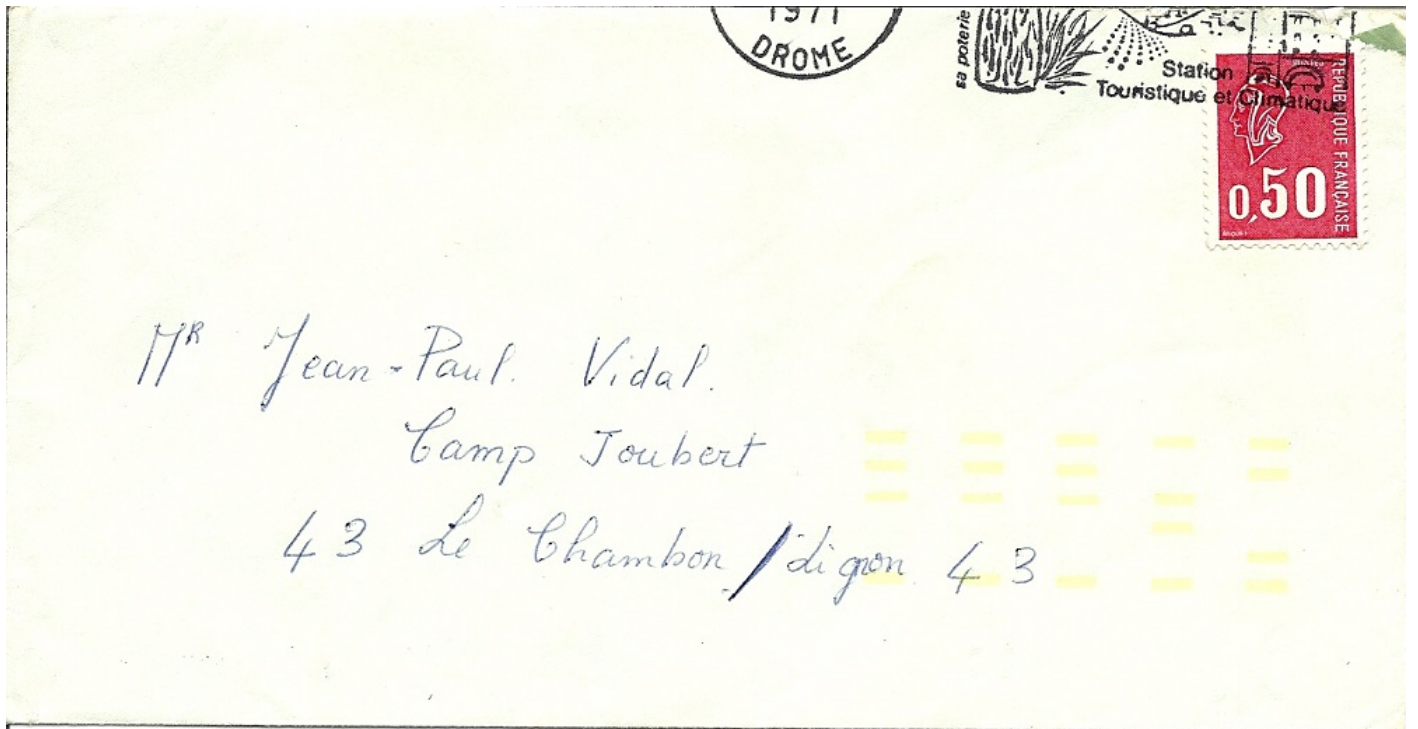 1971
DROME
sa poterie
Station
Touristique et Climatique
REPUBLIQUE FRANÇAISE
0,50
Mr Jean-Paul. Vidal.
Camp Joubert
43 Le Chambon/Lignon 43